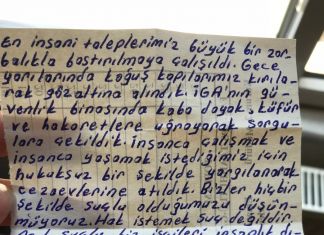 En insani taleplerimiz büyük bir zor-
balıkla bastırılmaya çalışıldı. Gece
yarılarında koğuş kapılarımız kırıla-
rak gözaltına alındık. İGA'nın gü-
venlik binasında kaba dayak, küfür
ve hakaretlere uğrayarak sorgu-
lara çekildik. İnsanca çalışmak ve
insanca yaşamak istediğimiz için
hukuksuz bir şekilde yargılanarak
cezaevlerine atıldık. Bizler hiçbir
şekilde suçlu olduğumuzu düşün-
müyoruz. Hak istemek suç değildir.
suçlu biz işçileri insanlık dı-